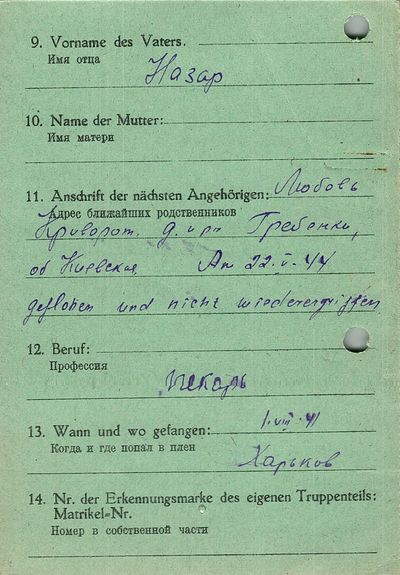 9. Vorname des Vaters.
Имя отца
Назар
10. Name der Mutter:
Имя матери
11. Anschrift der nächsten Angehörigen: Любовь
Адрес ближайших родственников
Криворот. д Гребенки,
об Киевская Am 22.V.44
geflohen und nicht wiederergriffen
12. Beruf:
Профессия
пекарь
13. Wann und wo gefangen: 1.VIII.41
Когда и где попал в плен
Харьков
14. Nr. der Erkennungsmarke des eigenen Truppenteils:
Matrikel-Nr.
Номер в собственной части